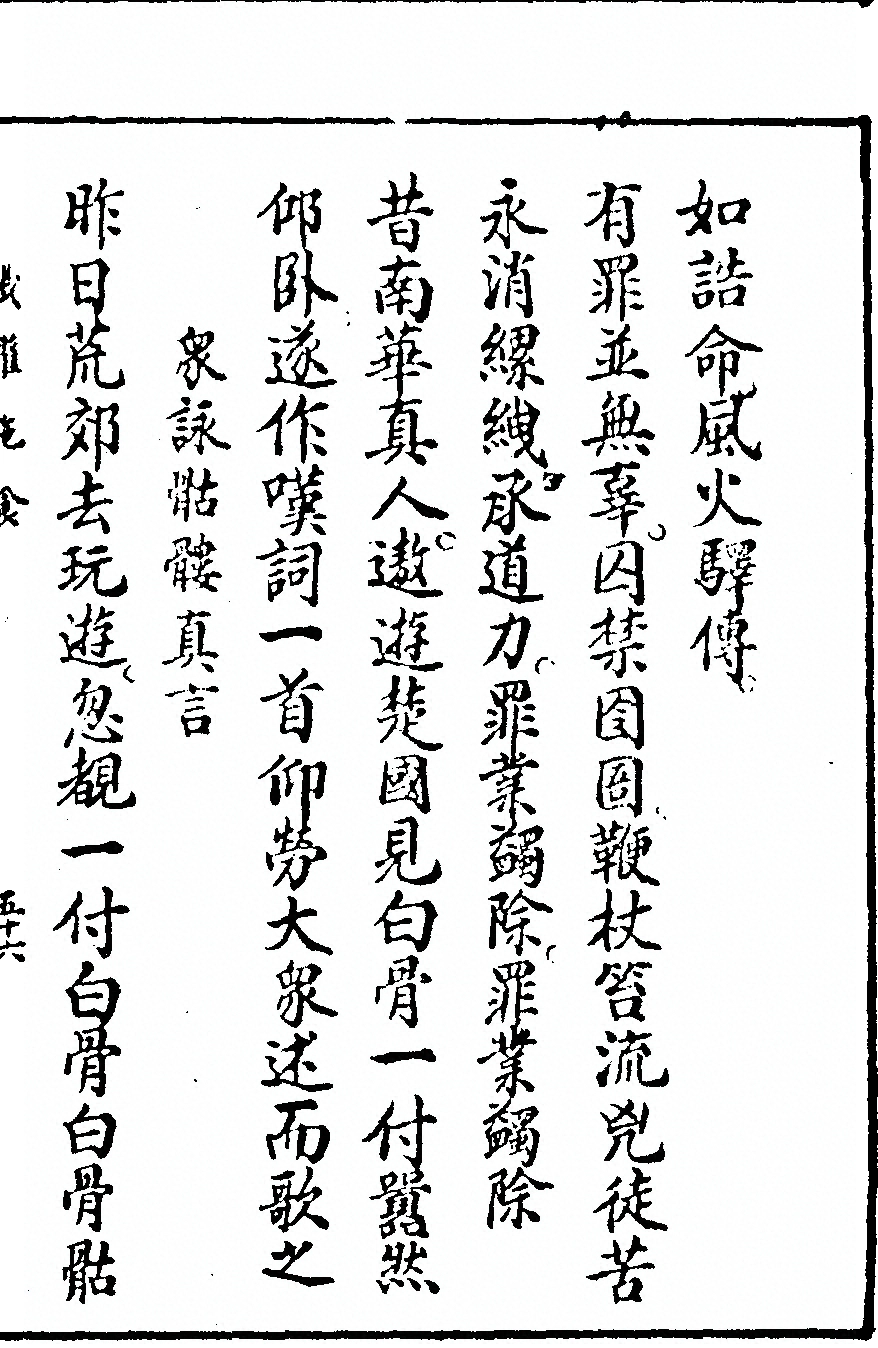 如誥命風火驛傳
有罪並無辜囚禁囹圄鞭杖笞流兇徒苦
永消縲絏承道力罪業蠲除罪業蠲除
昔南華真人遨遊楚國見白骨一付囂然
仰卧遂作嘆詞一首仰勞大眾述而歌之
眾詠骷髏真言
昨日荒郊去玩遊忽覩一付白骨白骨骷
五十六